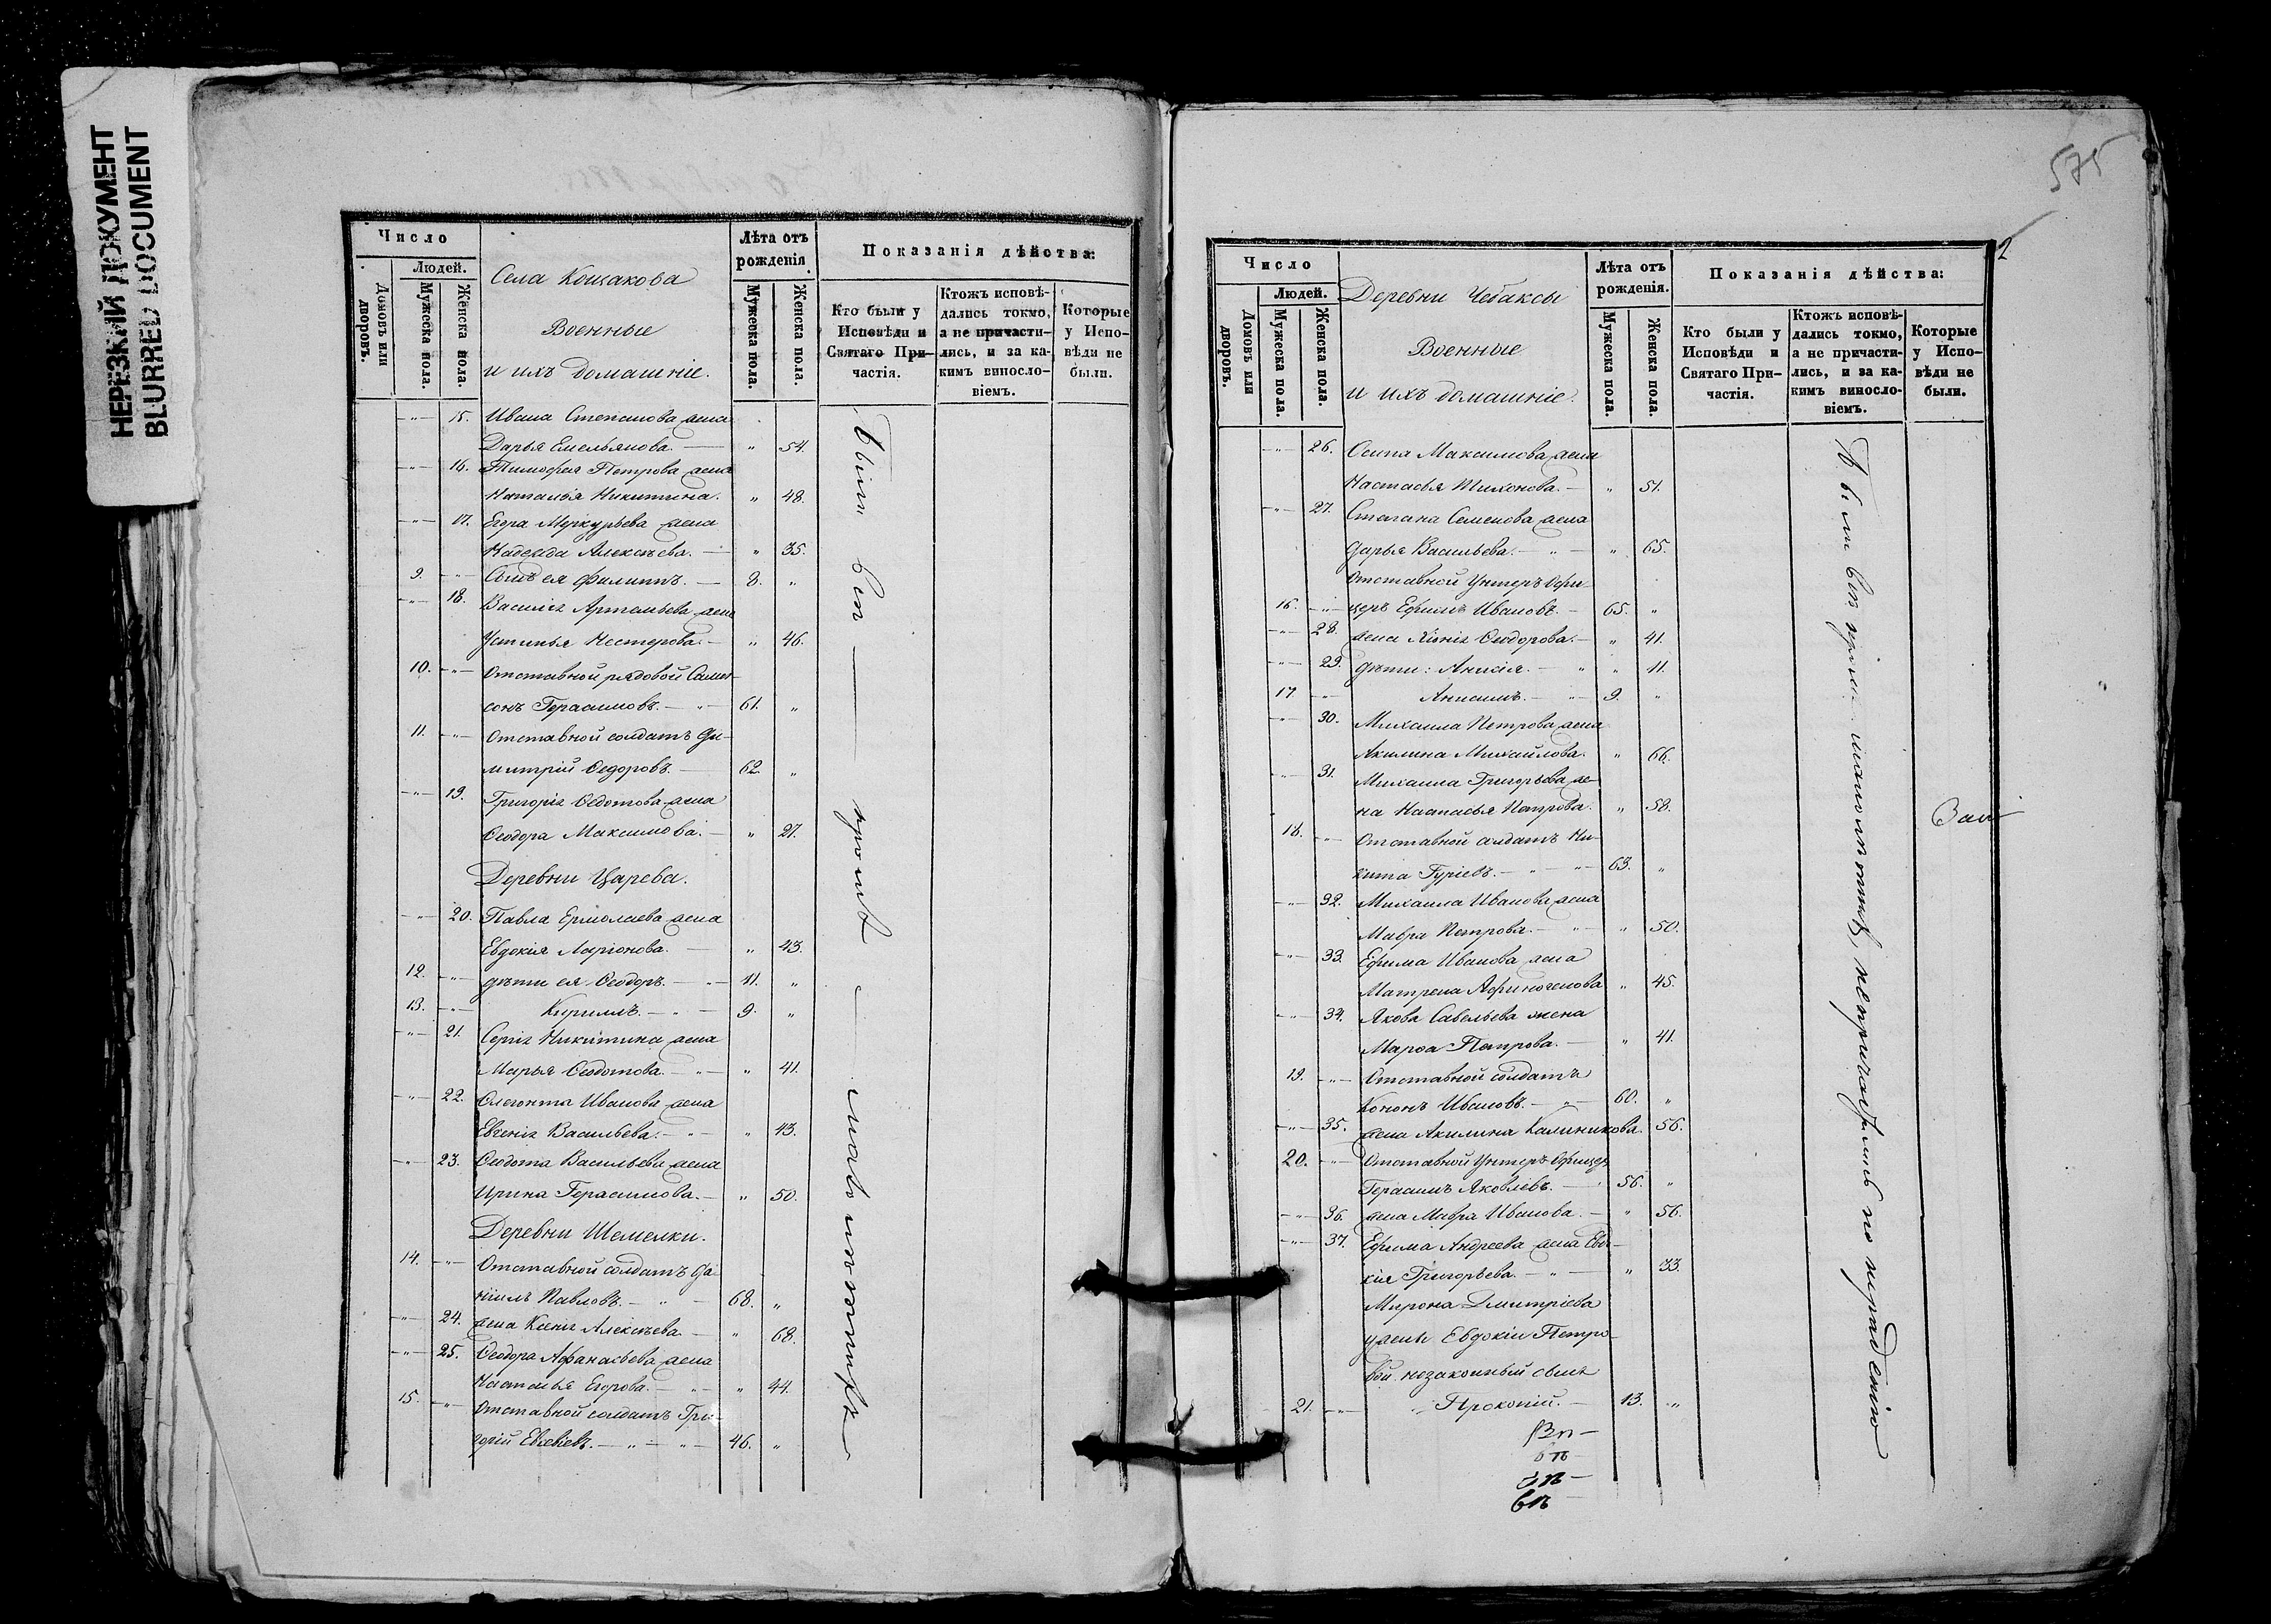 НЕРЕЗКИЙ ДОКУМЕНТ
BLURRED DOCUMENT
Число
Людей.
Домовъ или дворовъ.
Мужеска пола.
Женска пола.
Села Кощакова
Военные
и ихъ домашніе.
Лѣта отъ рожденія
Мужеска пола.
Женска пола.
Показанія дѣйства:
Кто были у Исповѣди и Святаго Причастія.
Ктожъ исповѣдались токмо, а не причастились, и за какимъ винословіемъ.
Которые у Исповѣди не были.
-"- 15. Ивана Степанова жена
Дарья Емельянова. — " 54.
-"- 16. Тимофея Петрова жена
Наталья Никитина. " 48.
-"- 17. Егора Меркурьева жена
Надежда Алексѣева. — " 35.
9. -"- Сынъ ея Филиппъ. — 8. "
-"- 18. Василія Артемьева жена
Устинья Нестерова. — " 46.
10. -"- Отставной рядовой Самп-
сонъ Герасимовъ. — 61. "
11. -"- Отставной солдатъ Ди-
митрій Ѳедоровъ. — 62. "
-"- 19. Григорія Ѳедотова жена
Ѳеодора Максимова. — " 27.
Деревни Царева.
-"- 20. Павла Ермолаева жена
Евдокія Ларіонова. — " 43.
12. -"- дѣти ея Ѳеодоръ. — 11. "
13. -"- Кириллъ. — 9. "
-"- 21. Сергія Никитина жена
Марья Ѳедотова. — " 41.
-"- 22. Ѳлегонта Иванова жена
Евгенія Васильева. — " 43.
-"- 23. Ѳедота Васильева жена
Ирина Герасимова. — " 50.
Деревни Шемелки.
14. -"- Отставной солдатъ Да-
ніилъ Павловъ. — 68. "
-"- 24. жена Ксенія Алексѣева. — " 68.
-"- 25. Ѳеодора Афанасьева жена
Наталья Егорова. — " 44.
15. -"- Отставной солдатъ Гри-
горій Евсевіевъ. — 46. "
Были всп — кромѣ — малолѣтнихъ
575
2
Число
Людей.
Домовъ или дворовъ.
Мужеска пола.
Женска пола.
Деревни Чебаксы
Военные
и ихъ домашніе.
Лѣта отъ рожденія.
Мужеска пола.
Женска пола.
Показанія дѣйства:
Кто были у Исповѣди и Святаго Причастія.
Ктожъ исповѣдались токмо, а не причастились, и за какимъ винословіемъ.
Которые у Исповѣди не были.
-"- 26. Осипа Максимова жена
Настасья Тихонова. — " 51.
-"- 27. Степана Семенова жена
Дарья Васильева. — " 65.
Отставной Унтеръ Офи-
16. -"- церъ Ефимъ Ивановъ. — 65. "
-"- 28. жена Ксенія Ѳеодорова. — " 41.
-"- 29. дѣти: Анисія. — " 11.
17. -"- Анисимъ. — 9. "
-"- 30. Михаила Петрова жена
Акилина Михайлова. " 66.
-"- 31. Михаила Григорьева же-
на Настасья Петрова. " 58.
18. -"- Отставной солдатъ Ни-
кита Гуріевъ. — 63. "
-"- 32. Михаила Иванова жена
Мавра Петрова. — " 50.
-"- 33. Ефима Иванова жена
Матрена Афиногенова " 45.
-"- 34. Якова Савельева жена
Марѳа Петрова. — " 41.
19. -"- Отставной солдатъ
Кононъ Ивановъ. — 60. "
-"- 35. жена Акилина Калиникова. 56.
20. -"- Отставной Унтеръ Офицеръ
Герасимъ Яковлевъ. — 56. "
-"- 36. жена Мавра Иванова. — " 56.
-"- 37. Ефима Андреева жена Евдо-
кія Григорьева. — " 33.
Мирона Дмитріева
у жены Евдокіи Петро-
вой незаконный сынъ
21. -"- Прокопій. — 13. "